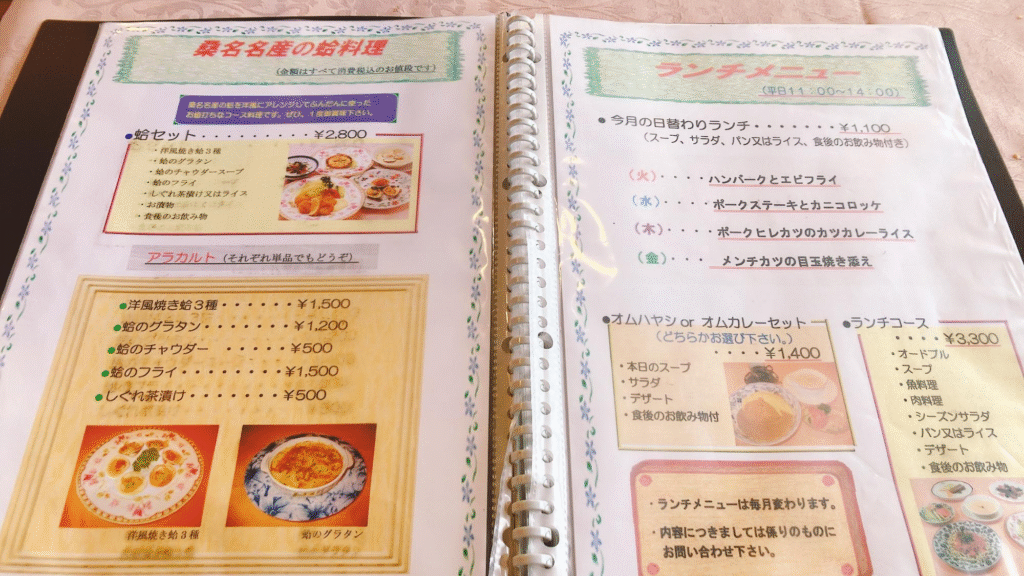 桑名名産の蛤料理
(金額はすべて消費税込のお値段です)
桑名名産の蛤を洋風にアレンジしてふんだんに使った
お値打ちなコース料理です。ぜひ、1度御賞味下さい。
●蛤セット・・・・・・・・・・¥2,800
・洋風焼き蛤3種
・蛤のグラタン
・蛤のチャウダースープ
・蛤のフライ
・しぐれ茶漬け又はライス
・お漬物
・食後のお飲み物
アラカルト(それぞれ単品でもどうぞ)
●洋風焼き蛤3種・・・・・・・¥1,500
●蛤のグラタン・・・・・・・・¥1,200
●蛤のチャウダー ・・・・・¥500
●蛤のフライ・・・・・・・・・¥1,500
●しぐれ茶漬け・・・・・・・・¥500
洋風焼き蛤3種
蛤のグラタン
ランチメニュー
(平日11:00~14:00)
●今月の日替わりランチ・・・・・・・・¥1,100
(スープ、サラダ、パン又はライス、食後のお飲み物付き)
(火)・・・・ハンバークとエビフライ
(水)・・・・ポークステーキとカニコロッケ
(木)・・・・ポークヒレカツのカツカレーライス
(金)・・・・メンチカツの目玉焼き添え
●オムハヤシ or オムカレーセット
(どちらかお選び下さい。)
・・・・¥1,400
・本日のスープ
・サラダ
・デザート
・食後のお飲み物付
●ランチコース
・・・・¥3,300
・オードブル
・スープ
・魚料理
・肉料理
・シーズンサラダ
・パン又はライス
・デザート
・食後のお飲み物
・ランチメニューは毎月変わります。
・内容につきましては係りのものに
お問い合わせ下さい。